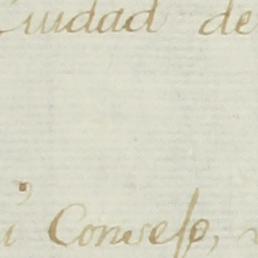 Ciudad de
i Conseso,